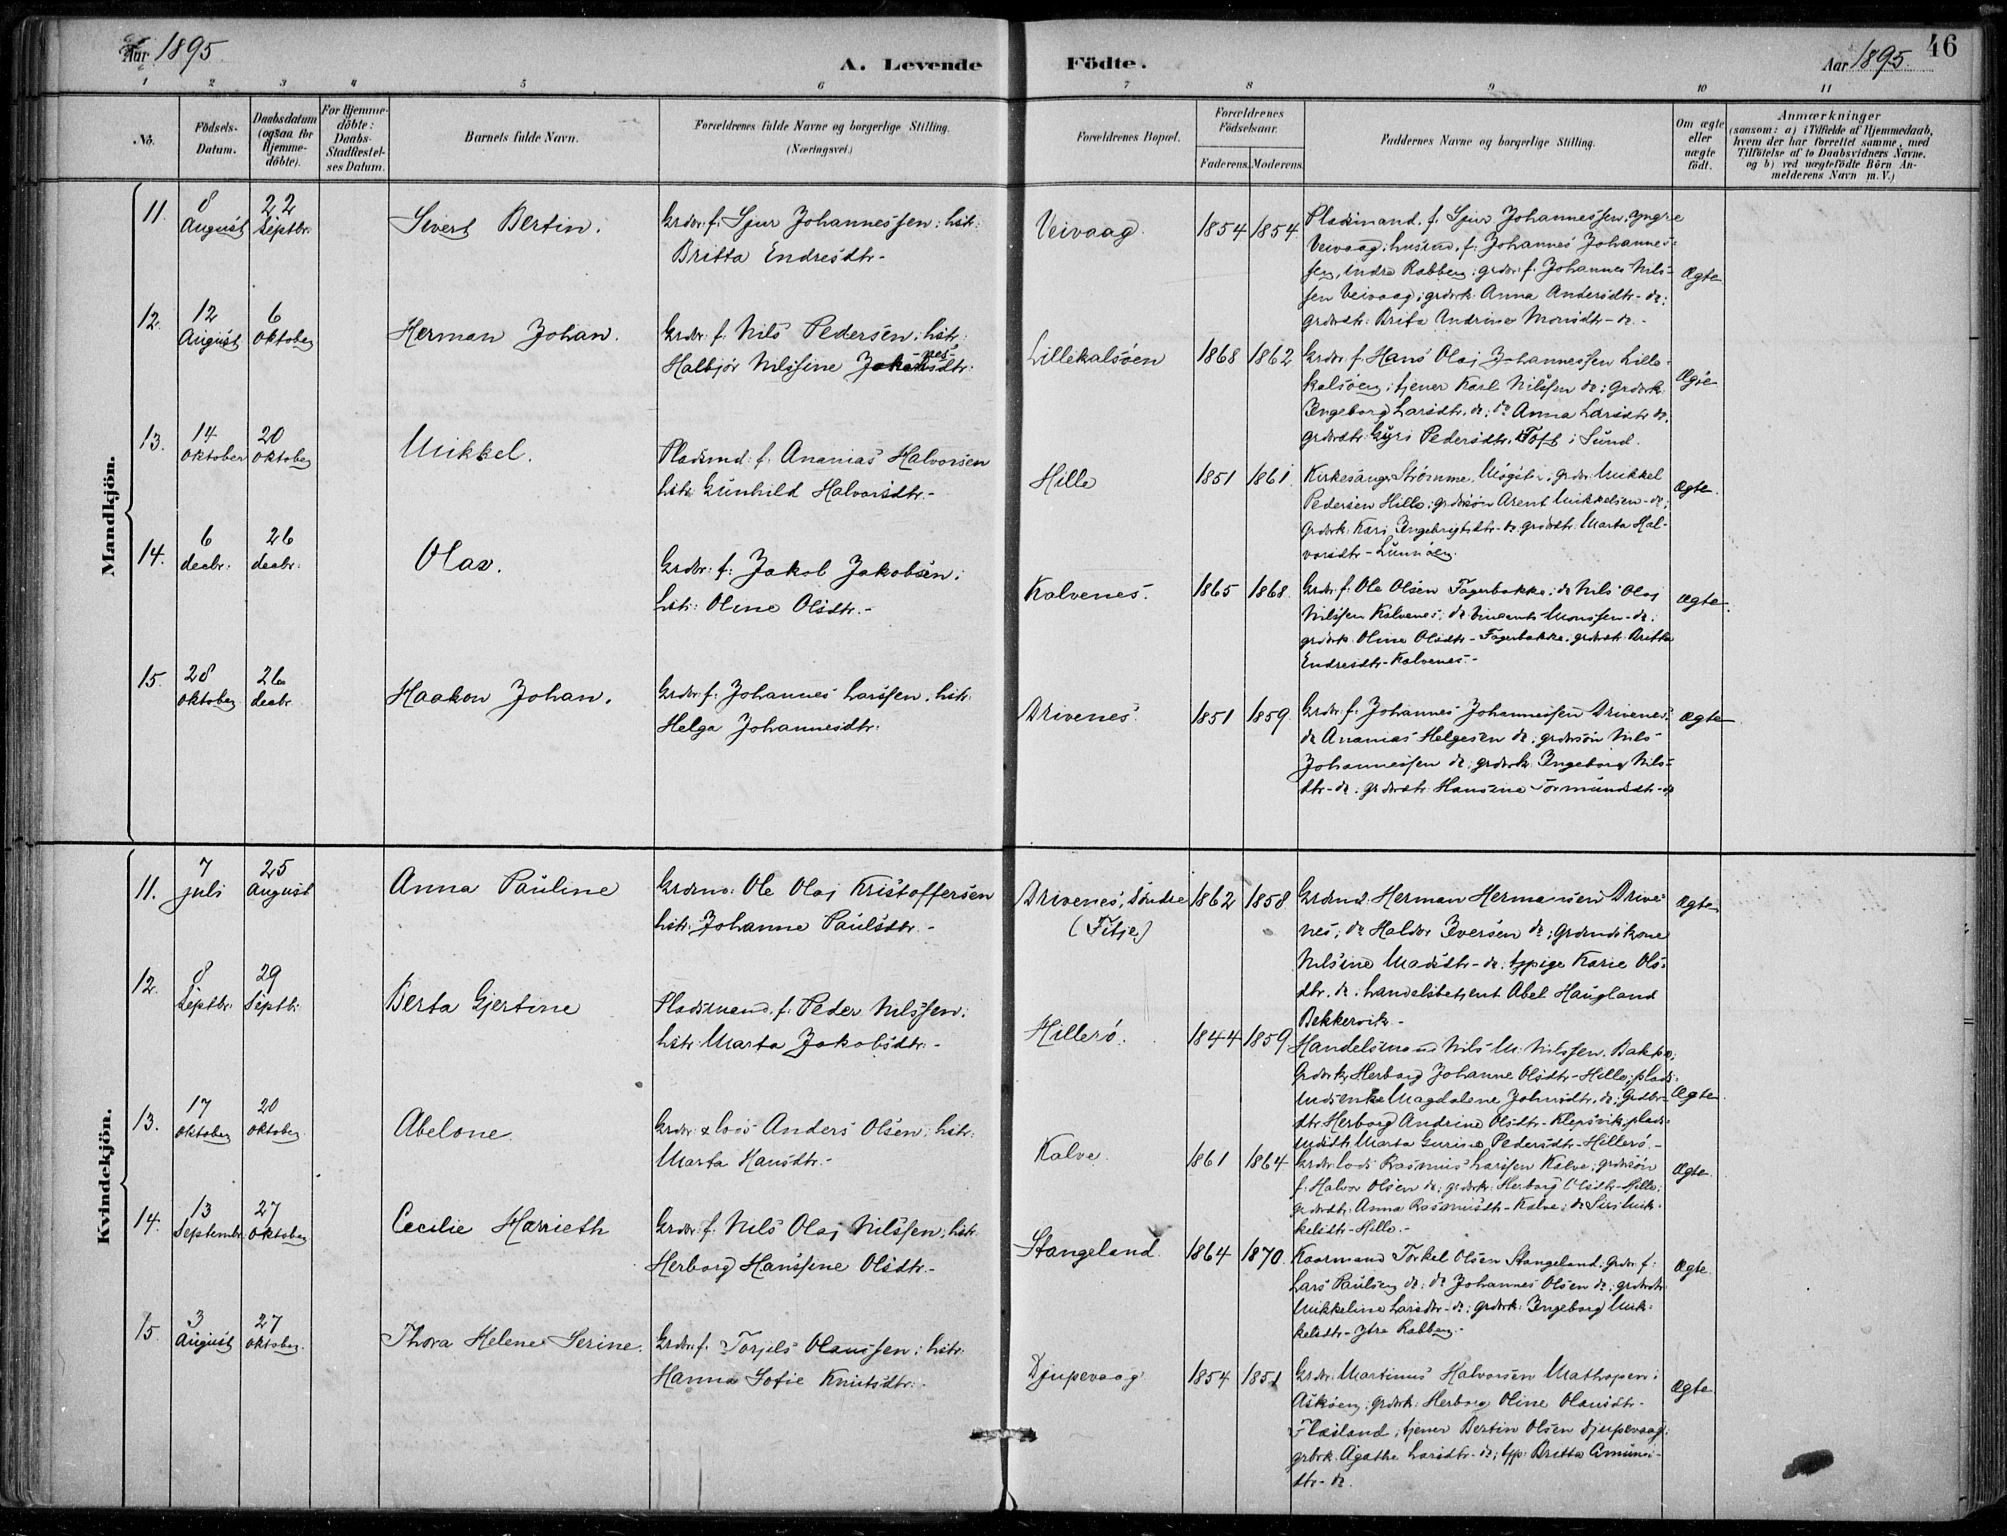 Aar 1895
A. Levende Födte.
Aar 1895. 46
1 2 3 4 5 6 7 8 9 10 11
No.
Födsels-
Datum.
Daabsdatum
(ogsaa for
Hjemme-
döbte).
For Hjemme-
döbte:
Daabs-
Stadfæstel-
ses Datum.
Barnets fulde Navn.
Forældrenes fulde Navne og borgerlige Stilling.
(Næringsvei.)
Forældrenes Bopæl.
Forældrenes
Födselsaar.
Faderens. Moderens.
Faddernes Navne og borgerlige Stilling.
Om ægte
eller
uægte
födt.
Anmærkninger
(saasom: a) i Tilfælde af Hjemmedaab,
hvem der har forrettet samme, med
Tilföielse af to Daabsvidners Navne,
og b) ved uægtefödte Börn An-
melderens Navn m. V.)
Mandkjön.
11. 8 August 22 Septbr. Sivert Bertin. Grdbr. f. Sjur Johannessen; hstr:
Britta Endresdtr.-
Veivaag. 1854 1854.
Pladsmand. f. Sjur Johannessen, yngre
Veivaag; husmd. f. Johannes Johannes-
sen, indre Rabben; grdbr. f. Johannes Nils-
sen Veivaag; grdbrk. Anna Andersdtr - do;
grdbrdtr. Brita Andrine Monsdtr - do.-
Ægte
12. 12 August 6 Oktober Herman Johan. Grdbr. f. Nils Pedersen; hstr:
Halbjör Nilssine Johannesdtr:
Lillekalsöen 1868 1862
Grdbr. f. Hans Olaj Johannessen Lille-
kalsöen; tjener Karl Nilssen do; Grdbrk.
Ingeborg Larsdtr. do; do Anna Larsdtr do.
grdbrdtr. Guri Pedersdtr. Toft i Sund.
Ægte
13. 14 Oktober 20 Oktober Mikkel. Pladsmd. f. Ananias Halvorsen
hstr Gunhild Halvorsdtr.-
Hille 1851 1861.
Kirkesanger Strömme, Mögster, grdbr. Mikkel
Pedersen Hille; grdbrsön Arent Mikkelsen - do;
Grdbrk. Kari Ingebrigtsdtr - do, grdbrdtr. Marta Hal-
vorsdtr - Lunnöen.
Ægte.
14. 6 decbr. 26 decbr. Olav. Grdbr. f. Jakob Jakobsen;
hstr: Oline Olsdtr.-
Kalvenes. 1865 1868.
Grdbr. f. Ole Olsen Fagerbakke; do Nils Olaj
Nilssen Kalvenes; do Vincents Monssen - do;
grdbrk. Oline Olsdtr - Fagerbakke, grdbrdtr. Britta
Endresdtr - Kalvenes.-
Ægte.
15. 28 Oktober 26 decbr Haakon Johan. Grdbr. f. Johannes Larssen, hstr:
Helga Johannesdtr:
Drivenes. 1851 1859.
Grdbr. f. Johannes Johannessen Drivenes,
do Ananias Helgesen do; grdbrsön Nils
Johannessen do; grdbrk. Ingeborg Nils-
dtr - do; grdbrdtr. Hansine Tormundsdtr - do
Ægte
Kvindekjön.
11. 7 juli 25 August Anna Pauline Grdmd. Ole Olaj Kristoffersen
hstr: Johanne Paulsdtr.-
Drivenes, söndre
(Fitje)
1862 1858
Grdmd. Herman Hermansen Drive-
nes; do Haldor Iversen do; grdmdskone
Nilsine Madsdtr - do, tjpige Karie Ols-
dtr. do; handelsbetjent Abel Haugland
Bekkervik.-
Ægte
12. 8 Septbr. 29 Septbr: Berta Gjertine Pladsmand. f. Peder Nilssen;
hstr: Marta Jakobsdtr.-
Hillerö. 1844 1859
Handelsmand Nils M. Nilssen. Bakke;
Grdbrk, Herborg Johanne Olsdtr - Hille; plads-
mdsenke Magdalene Johnsdtr. do; Grdbr-
dtr Herborg Andrine Olsdtr - Klepsvik, plads-
mdsdtr. Marta Gurine Pedersdtr - Hillerö.-
Ægte
13. 17 Oktober 20 Oktober Abelone. Grdbr. & lods Anders Olsen, hstr:
Marta Hansdtr.-
Kalve. 1861 1864
Grdbr. lods Rasmus Larssen Kalve; grdbrsön
f. Halvor Olsen do; grdbrk. Herborg Olsdtr - Hille;
grdbrdtr. Anna Rasmusdtr - Kalve; do Siri Mik-
kelsdtr - Hille.-
Ægte.
14. 13 Septembr. 27 Oktober Cecilie Harrieth Grdbr. f. Nils Olaj Nilssen, hstr:
Herborg Hanssine Olsdtr.-
Stangeland. 1864 1870.
Kaarmand Torkel Olsen Stangeland; Grdbr. f.
Lars Paulsen do; do Johannes Olsen do; grdbrdtr
Mikkeline Larsdtr - do; grdbrk. Ingeborg Mik-
kelsdtr - ytre Rabben.-
Ægte.
15. 3 August 27 Oktober. Thora Helene Serine. Grdbr. f. Torjels Olaussen; hstr:
Hanna Sofie Knutsdtr.-
Djupevaag 1854 1851
Grdbr. Martinus Halvorsen Mathopen i
Asköen; grdbrk. Herborg Oline Olausdtr-
Flæsland; tjener Bertin Olsen Djupevaag;
grbrk. Agathe Larsdtr - do; tjp. Britta Amunds-
dtr - do.
Ægte